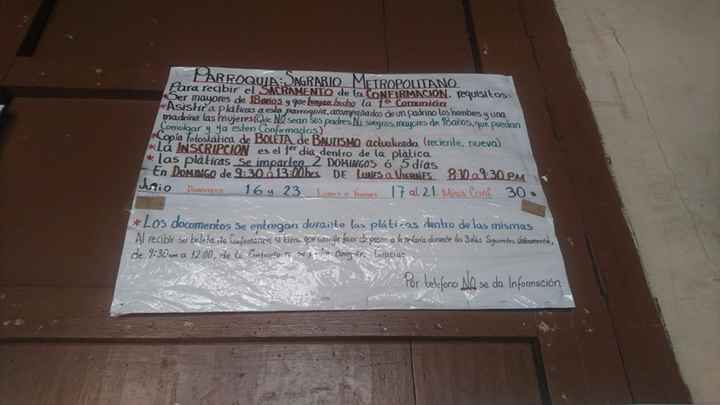 PARROQUIA: SAGRARIO METROPOLITANO
Para recibir el SACRAMENTO de la CONFIRMACIÓN, requisitos:
*Ser mayores de 18 años y que hayan hecho la 1ª Comunión
*Asistir a pláticas a esta parroquia, acompañados de un padrino los hombres y una
madrina las mujeres (Que NO sean sus padres Ni suegros, mayores de 18 años, que puedan
Comulgar y ya estén Confirmados)
*Copia fotostática de BOLETA de BAUTISMO actualizada (reciente, nueva)
*La INSCRIPCION es el 1er día dentro de la plática
*Las pláticas se imparten 2 DOMINGOS ó 5 días
En DOMINGO de 9:30 á 13:00 hrs DE LUNES a VIERNES 8:10 a 9:30 PM
Junio Domingos 16 y 23 Lunes a Viernes 17 al 21 Misa Conf. 30
*Los documentos se entregan durante las pláticas dentro de las mismas
Al recibir su boleta de Confirmación de
de 9:30 am a 12:00, de la
Por teléfono NO se da Información